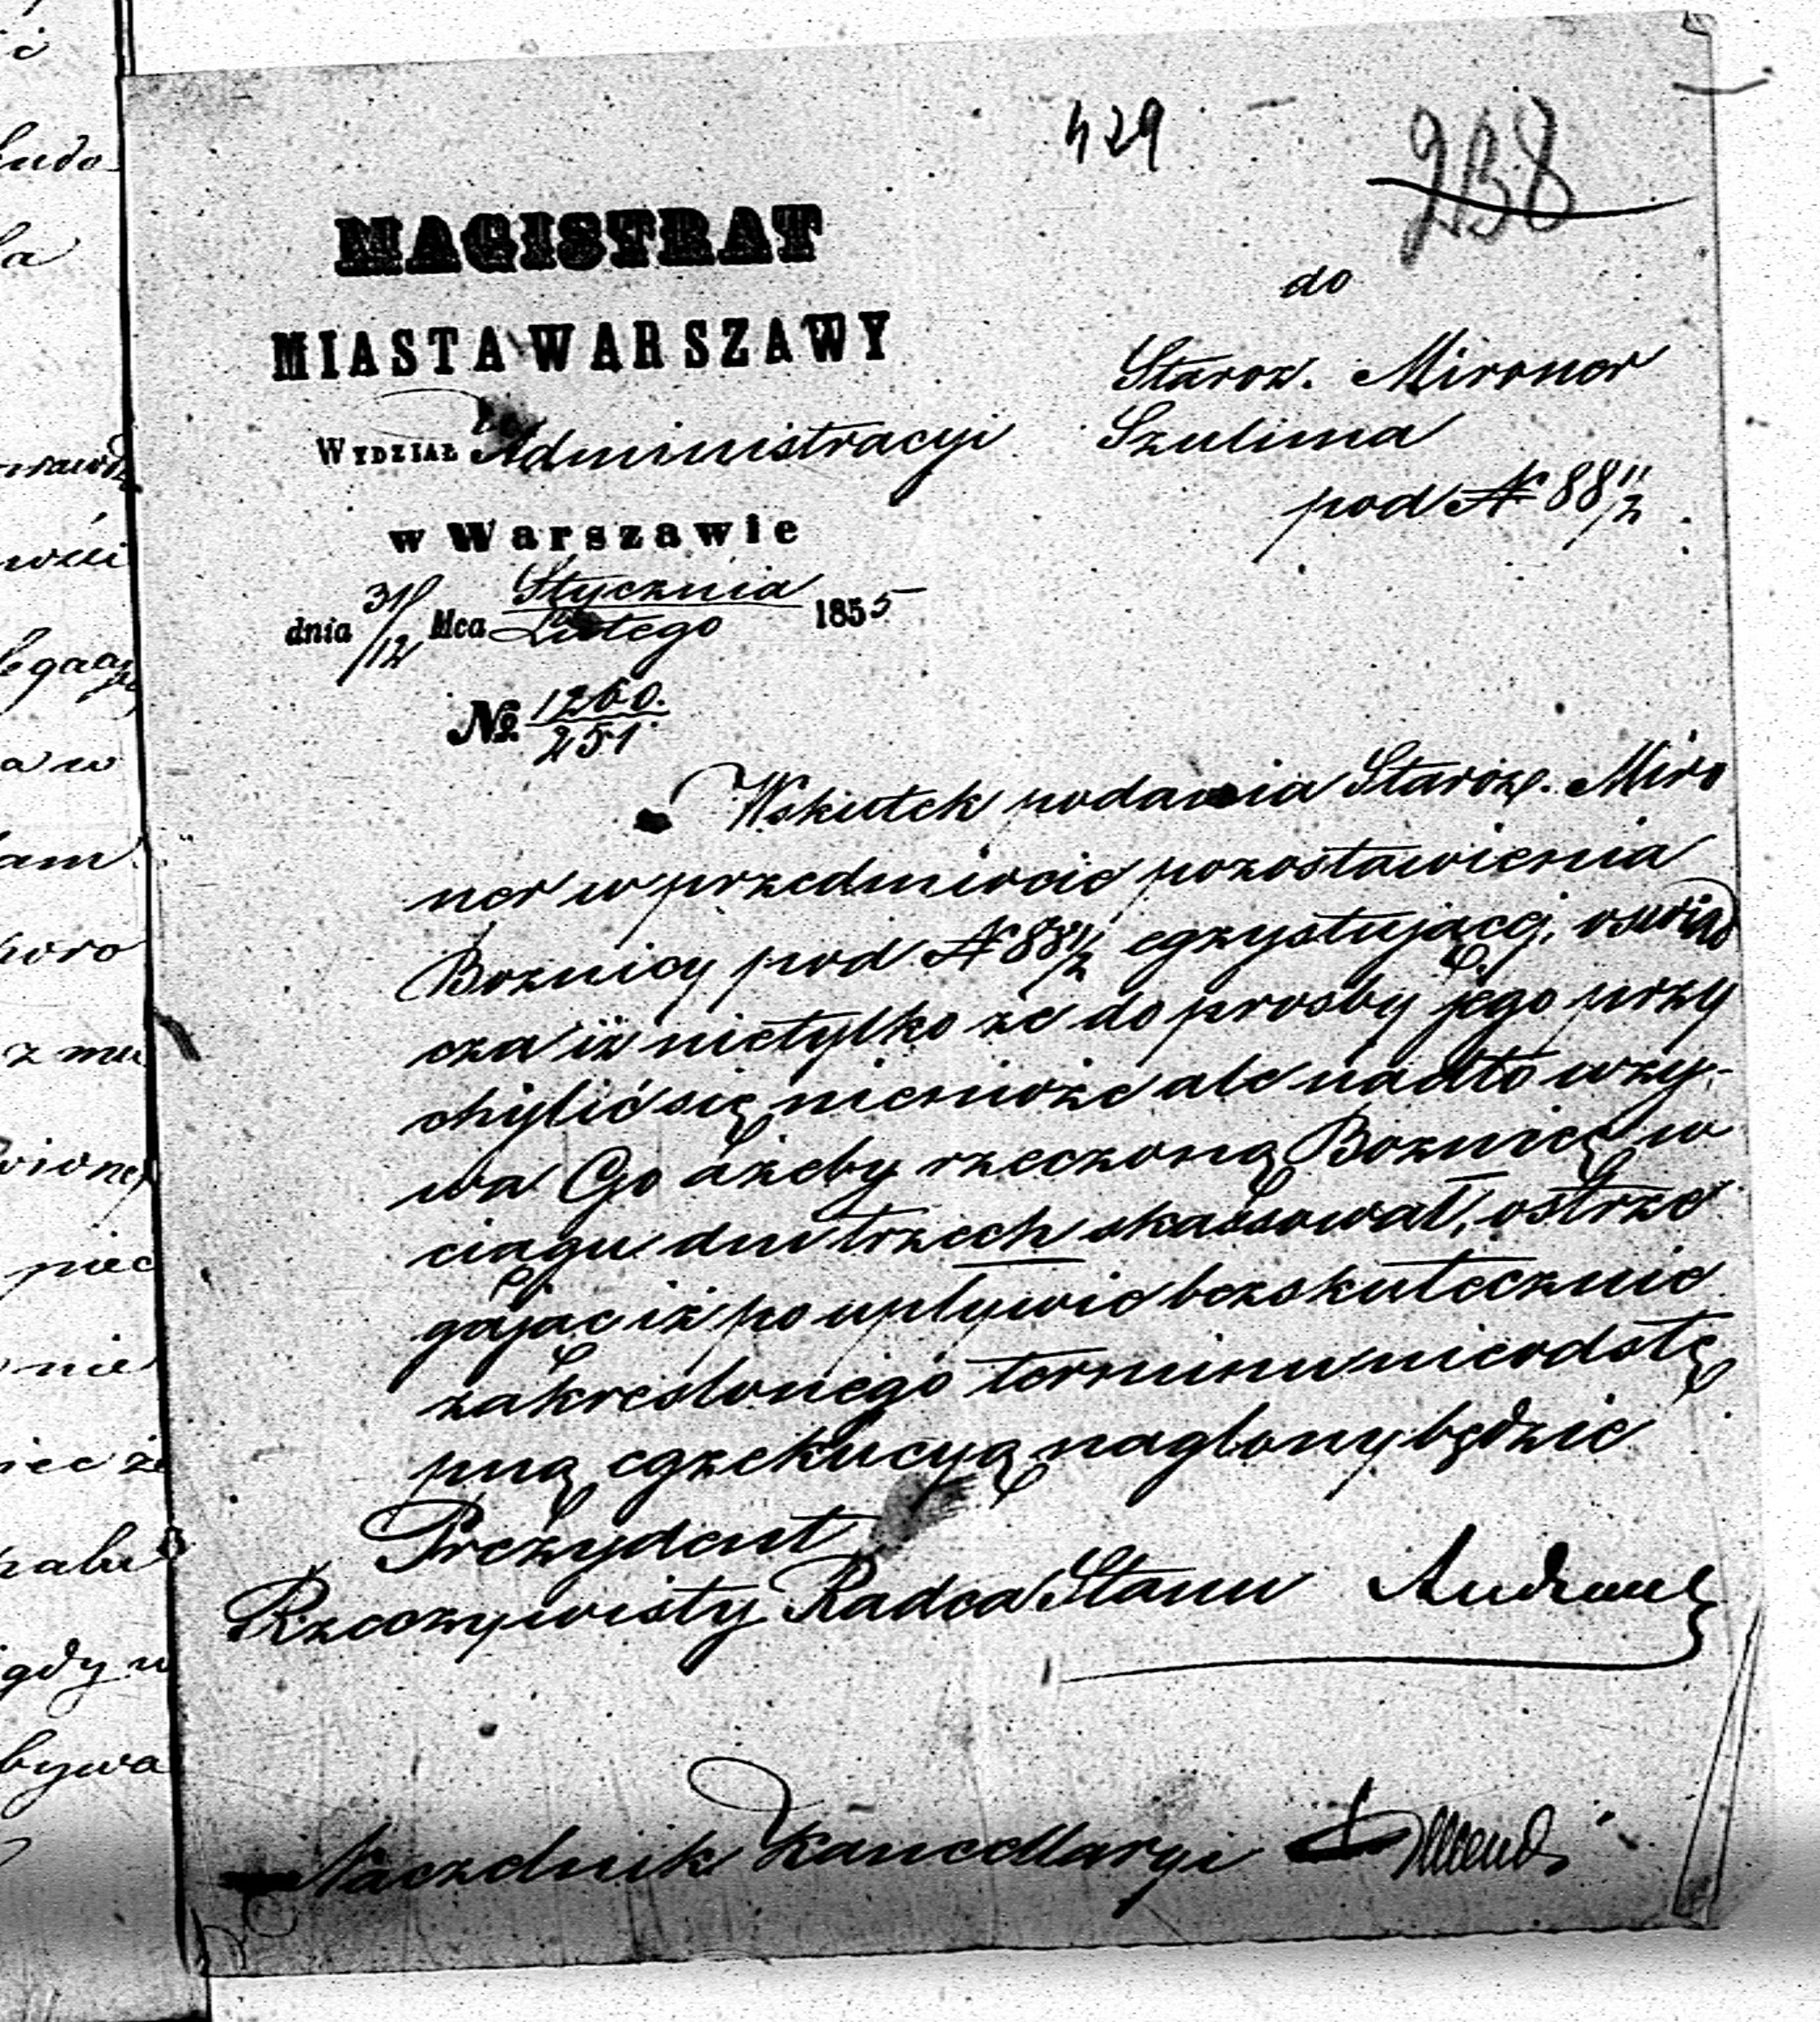 429
238
MAGISTRAT
MIASTA WARSZAWY
WYDZIAŁ Administracyi
w Warszawie
dnia 31/12 Mca Stycznia/Lutego 1855
№ 1260./251.
do
Staroz. Mironer
Szulima
pod № 88 1/2
Wskutek podania Staroz. Miro
ner w przedmiocie pozostawienia
Boznicy pod № 88 1/2 egzystującej, oswiad
cza iż nietylko że do prosby jego przy
chylić się niemoże ale nadto wzy-
wa Go ażeby rzeczoną Boznicę w
ciągu dni trzech skassował, ostrze
gając iż po upływie bezskutecznie
zakreslonego terminu nieodstę
pną egzekucyą naglony będzie
Prezydent
Rzeczywisty Radca Stanu
Naczelnik Kancellaryi